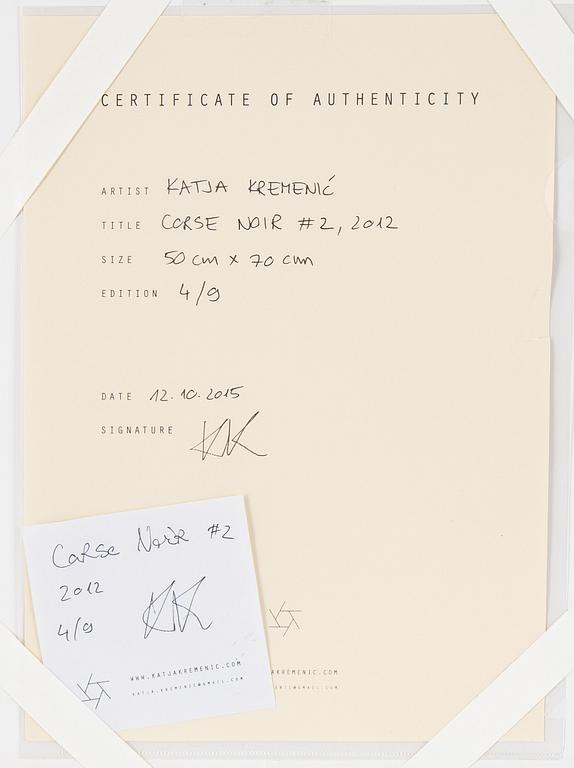 CERTIFICATE OF AUTHENTICITY
ARTIST KATJA KREMENIĆ
TITLE CORSE NOIR #2, 2012
SIZE 50 cm x 70 cm
EDITION 4/9
DATE 12.10.2015
SIGNATURE KK
Corse Noir #2
2012
4/9 KK
WWW.KATJAKREMENIC.COM
KATJA.KREMENIC@GMAIL.COM
AKREMENIC.COM
ENIC@GMAIL.COM